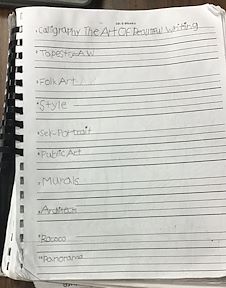 •Calligraphy The Art Of Beautiful Writing
•Tapestry
•Folk Art
•Style
•Self-Portrait
•Public Art
•Murals
•Architect
•Rococo
•Panorama